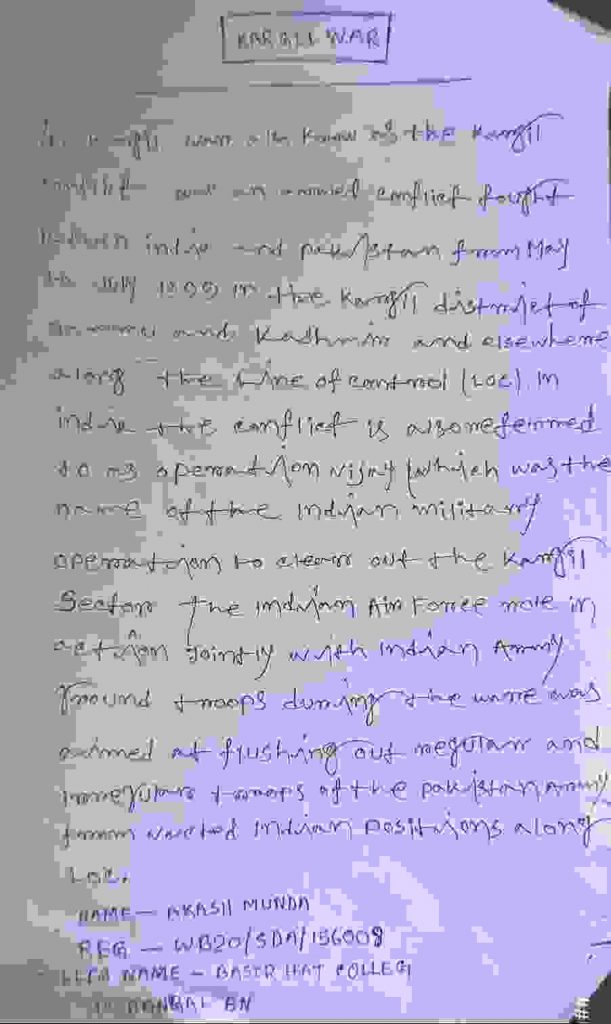 KARGIL WAR
war also know as the Kangil
was an armed conflict fought
between india and pakistan from May
July 1999 in the Kangil distnict of
and Kashmin and elsewhene
along the Line of contnol (LOC). In
india the conflict is also nefenned
to as openation vijay which was the
name of the indian militany
openation to clean out the Kangil
Secton The indian Ain Fonce nole in
action Jointly with indian Anmy
Ground tnoops duning the wane was
aimed at flushing out negulan and
innegulan tnoops of the pakistan Anmy
fnom vacated indian Positions along
LOC.
NAME — AKASH MUNDA
REG — WB20/SDA/156008
NAME — BASIR HAT COLLEG
BN